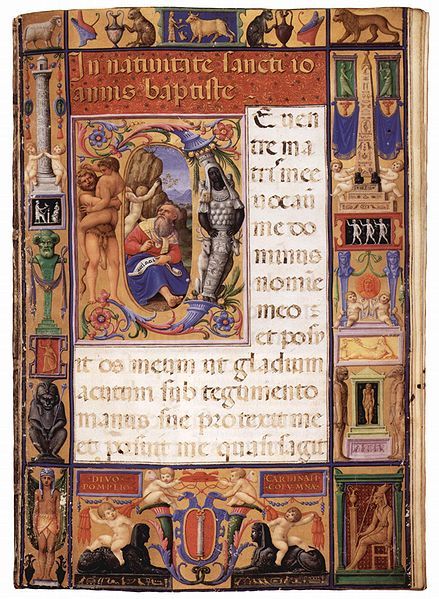 In natiuitate sancti io
annis baptiste
DE uen
tre ma
tris mee
uocauit
me do
minus
nomine
meo
et posu
it os meum ut gladium
acutum sub tegumento
manus sue protexit me
et posuit me quasi sagit
DIVO
POMPEIO
CARDINALI
COLVMNA